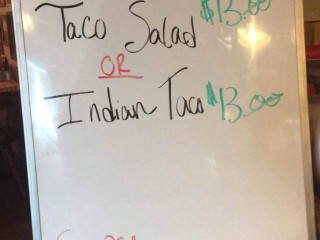 Taco Salad $13.00
OR
Indian Taco $13.00